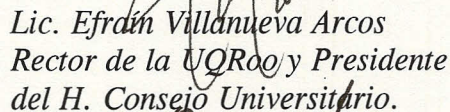 Lic. Efraín Villanueva Arcos
Rector de la UQRoo y Presidente
del H. Consejo Universitario.